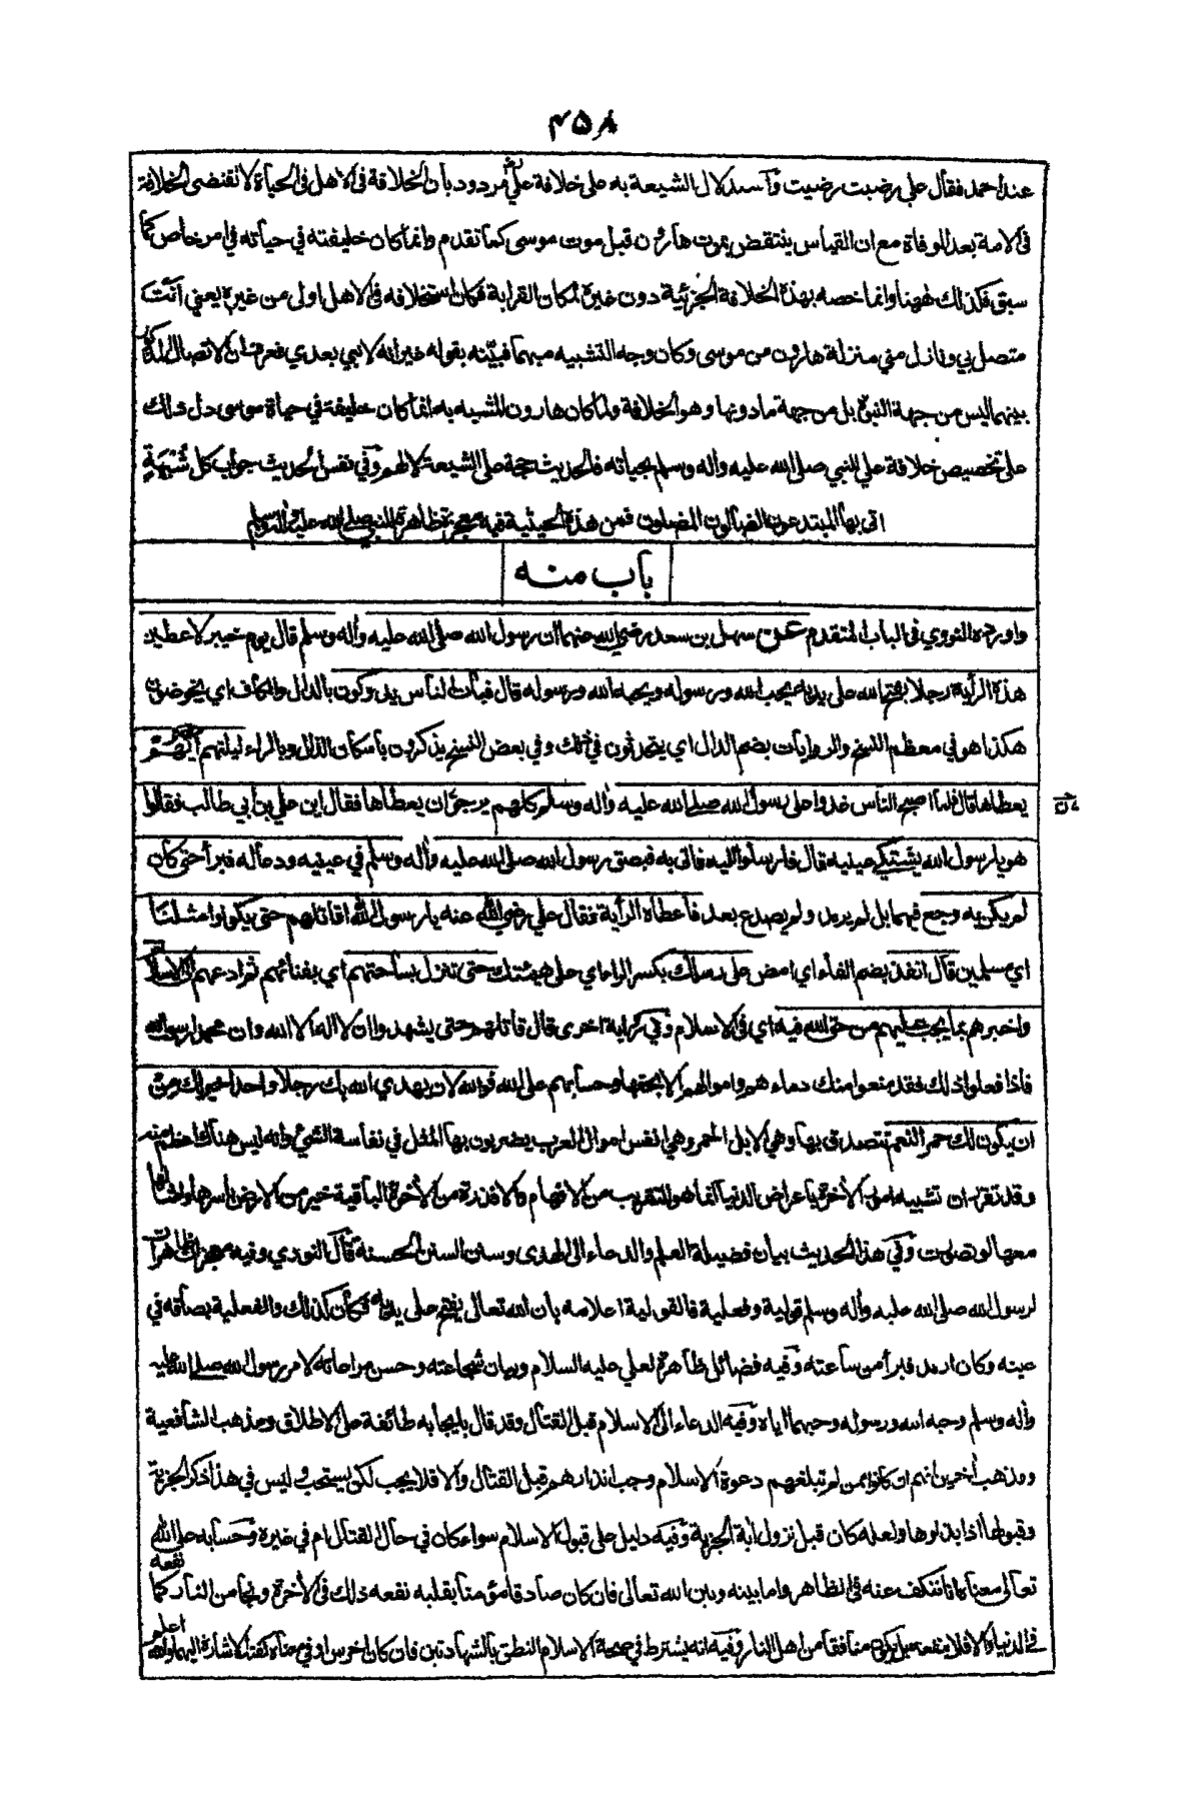 ۴۵۸
عند احمد فقال علي رضيت رضيت وآستدلال الشيعة به على خلافة علي مردود بان الخلافة فى الاهل فى الحياة لا تقتضى الخلافة
فى الامة بعد الوفاة مع ان القياس ينتقض بموت هارون قبل موت موسى كما تقدم وانما كان خليفته في حياته في امر خاص كما
سبق فكذلك ههنا وانما خصه بهذه الخلافة الجزئية دون غيره لمكان القرابة فكان استخلافه فى الاهل اولى من غيره يعني انت
متصل بي ونازل مني منزلة هارون من موسى وكان وجه التشبيه مبهما فبينه بقوله غير انه لا نبي بعدي فعرف ان الاتصال المذكور
بينهما ليس من جهة النبوة بل من جهة ما دونها وهو الخلافة ولما كان هارون المشبه به انما كان خليفة في حياة موسى دل ذلك
على تخصيص خلافة علي النبي صلى الله عليه وأله وسلم بحياته فالحديث حجة على الشيعة لا لهم وفي نفس الحديث جواب كل شبهة
اتى بها المبتدعون الضالون المضلون فمن هذه الحيثية فيه معجزة ظاهرة للنبي صلى الله عليه وأله وسلم
باب منه
واورده النووي فى الباب المتقدم عن سهل بن سعد رضي الله عنهما ان رسول الله صلى الله عليه وأله وسلم قال يوم خيبر لاعطين
هذه الراية رجلا يفتح الله على يديه يحب الله ورسوله ويحبه الله ورسوله قال فبات الناس يدوكون بالدال والكاف اي يخوضون
هكذا هو في معظم النسخ والروايات بضم الدال اي يتحدثون في ذلك وفي بعض النسخ يذكرون باسكان الذال وبالراء ليلتهم ايهم
يعطاها قال فلما اصبح الناس غدوا على رسول الله صلى الله عليه وأله وسلم كلهم يرجو ان يعطاها فقال اين علي بن أبي طالب فقالوا
هو يا رسول الله يشتكي عينيه قال فارسلوا اليه فاتى به فبصق رسول الله صلى الله عليه وأله وسلم في عينيه ودعا له فبرأ حتى كان
لم يكن به وجع فيهما بل لم يرمد ولم يصدع بعد فاعطاه الراية فقال علي رضي الله عنه يا رسول الله اقاتلهم حتى يكونوا مثلنا
اي مسلمين قال انفذ بضم الفاء اي امض على رسلك بكسر الراء اي على هيئتك حتى تنزل بساحتهم اي بفنائهم ثم ادعهم الى الاسلام
واخبرهم بما يجب عليهم من حق الله فيه اي فى الاسلام وفي رواية اخرى قال قاتلهم حتى يشهدوا ان لا اله الا الله وان محمدا رسول الله
فاذا فعلوا ذلك فقد منعوا منك دماءهم واموالهم الا بحقها وحسابهم على الله فوالله لان يهدي الله بك رجلا واحدا خير لك من
ان يكون لك حمر النعم تتصدق بها وهي الابل الحمر وهي انفس اموال العرب يضربون بها المثل في نفاسة الشيء وانه ليس هناك اعظم منه
وقد تقرر ان تشبيه امور الأخرة باعراض الدنيا انما هو للتقريب من الافهام والا فذرة من الأخرة الباقية خير من الارض باسرها وامثالها
معها لو تصورت وفي هذا الحديث بيان فضيلة العلم والدعاء الى الهدى وسن السنن الحسنة قال النووي وفيه معجزات ظاهرات
لرسول الله صلى الله عليه وأله وسلم قولية وفعلية فالقولية اعلامه بان الله تعالى يفتح على يديه فكان كذلك والفعلية بصاقه في
عينه وكان ارمد فبرأ من ساعته وفيه فضائل ظاهرة لعلي عليه السلام وبيان شجاعته وحسن مراعاته لامر رسول الله صلى الله عليه
وأله وسلم وحبه الله ورسوله وحبهما اياه وفيه الدعاء الى الاسلام قبل القتال وقد قال بايجابه طائفة على الاطلاق ومذهب الشافعية
ومذهب أخرين انهم ان كانوا ممن لم تبلغهم دعوة الاسلام وجب انذارهم قبل القتال والا فلا يجب لكن يستحب وليس في هذا ذكر الجزية
وقبولها اذا بذلوها ولعله كان قبل نزول أية الجزية وفيه دليل على قبول الاسلام سواء كان في حال القتال ام في غيره وحسابه على الله
تعالى معناه انا نكف عنه فى الظاهر واما بينه وبين الله تعالى فان كان صادقا مؤمنا بقلبه نفعه ذلك فى الأخرة ونجا من النار كما نفعه
فى الدنيا والا فلا ينفعه بل يكون منافقا من اهل النار وفيه انه يشترط في صحة الاسلام النطق بالشهادتين فان كان اخرس او في معناه كفته الاشارة اليهما والله اعلم